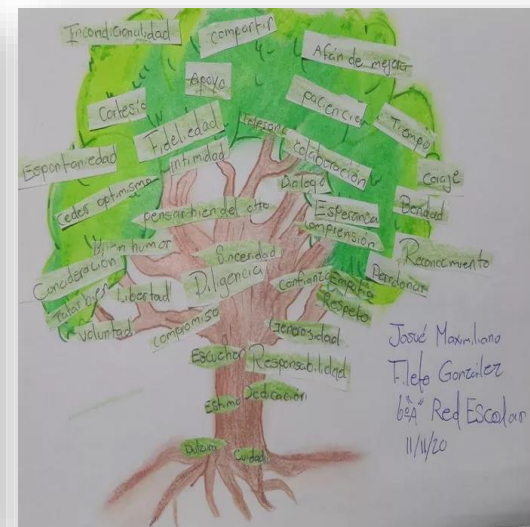 Incondicionalidad
compartir
Afán de mejora
Apoyo
Cortesía
paciencia
Tiempo
Fidelidad
Tolerancia
colaboración
Espontaniedad
intimidad
coraje
Dialogo
Ceder optimismo
Bondad
pensar bien del otro
Esperanza
comprensión
Buen humor
Sinceridad
Reconocimiento
Consideración
Diligencia
Perdonar
confianza
Empatía
Tratar bien
Libertad
Respeto
voluntad
compromiso
Generosidad
Escuchar
Responsabilidad
Estima
Dedicación
Dulzura
Cuidad
Josué Maximiliano
Fileto González
6º "A" Red Escolar
11/11/20